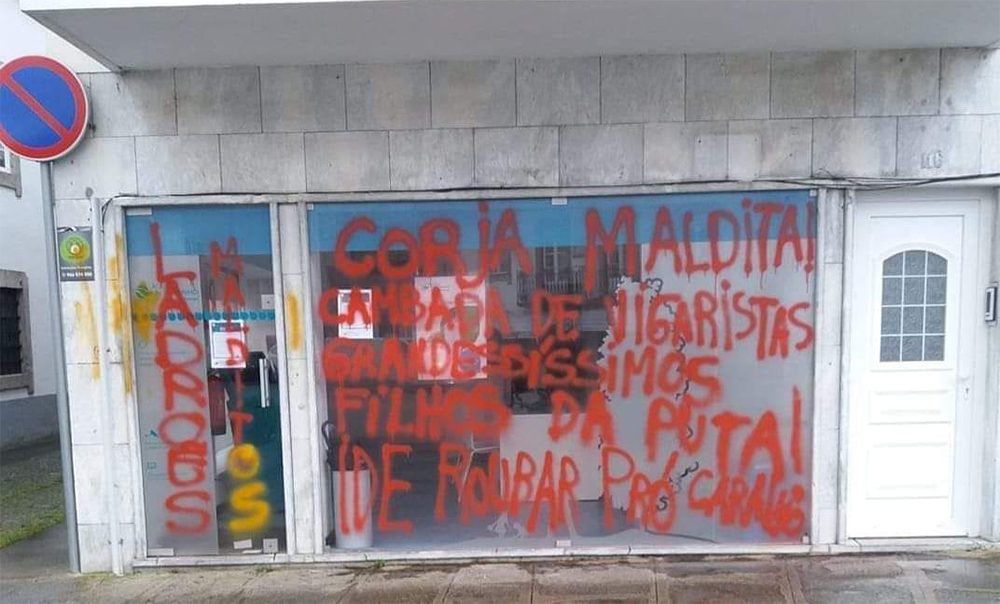 LADROES
MALDITOS
CORjA MALDiTA!
CAMBADA DE VIGARiSTAS
GRANDESSPÍSSIMOS
FiLHOS DA PUTA!
IDE ROUBAR PRÓ CARALHO
116